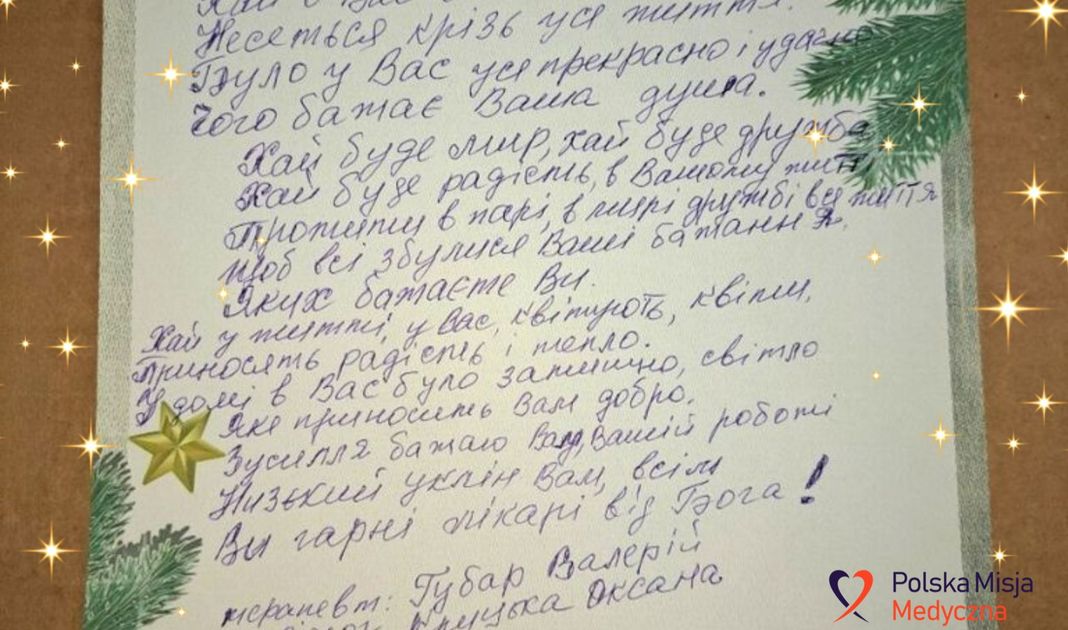 Хай в Вас
Несеться крізь усе життя.
Було у Вас усе прекрасно і удачно
Чого бажає Ваша душа.
Хай буде мир, хай буде дружба,
Хай буде радість, в Вашому житті,
Прожити в парі, в мирі дружбі все життя
Щоб всі збулися Ваші бажання
Яких бажаєте Ви.
Хай у житті, у Вас, квітують, квіти,
Приносять радість і тепло.
У домі в Вас було затишно, світло
Яке приносить Вам добро.
Зусилля бажаю Вам, Вашій роботі
Низький уклін Вам, всім
Ви гарні лікарі від Бога!
терапевт: Губар Валерій
Оксана
Polska Misja
Medyczna